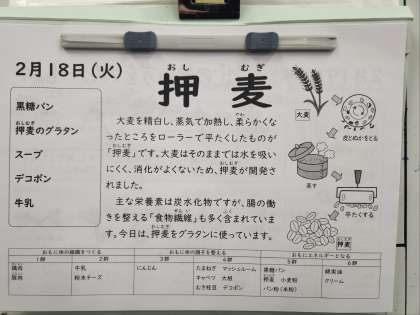 2月18日(火)
押麦
おし むぎ
黒糖パン
おしむぎ
押麦のグラタン
スープ
デコポン
牛乳
大麦を精白し、蒸気で加熱し、柔らかくな
ったところをローラーで平たくしたものが
「押麦」です。大麦はそのままでは水を吸い
にくく、消化がよくないため、押麦が開発さ
れました。
主な栄養素は炭水化物ですが、腸の働
きを整える「食物繊維」も多く含まれていま
す。今日は、押麦をグラタンに使っています。
大麦
皮とぬかをとる
蒸す
平たくする
押麦
おもに体の組織をつくる
おもに体の調子を整える
おもにエネルギーとなる
1群 2群 3群 4群 5群 6群
鶏肉 牛乳 にんじん たまねぎ マッシュルーム 黒糖パン 綿実油
豚肉 粉末チーズ キャベツ 大根 押麦 小麦粉 クリーム
むき枝豆 デコポン パン粉(米粉)